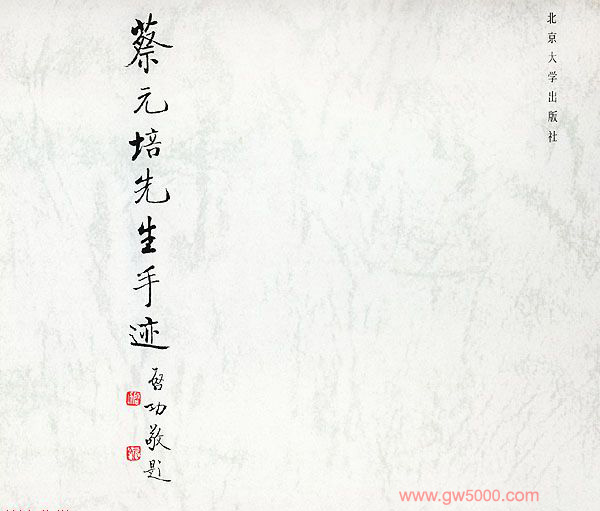 北京大学出版社
蔡元培先生手迹
启功敬题
www.gw5000.com